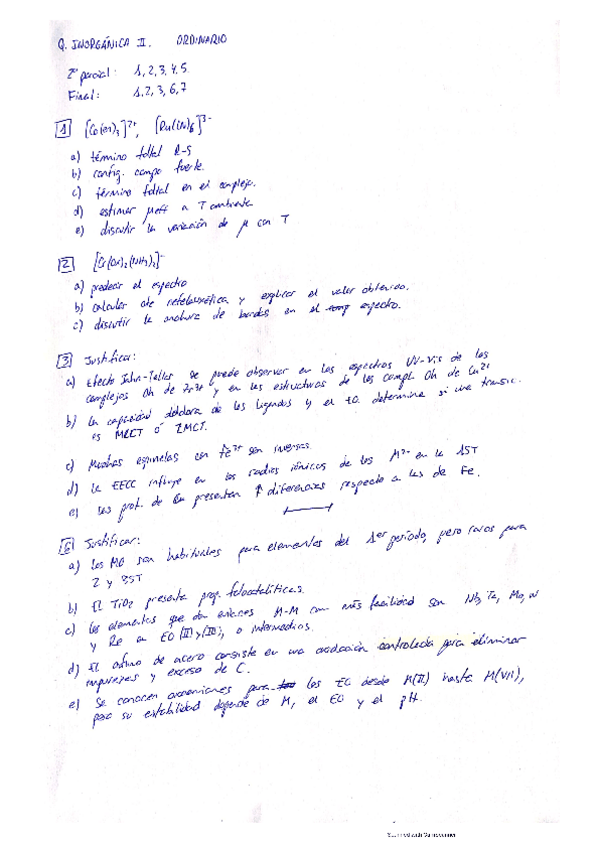 Q. INORGÁNICA II. ORDINARIO
2º parcial: 1, 2, 3, 4, 5.
Final: 1, 2, 3, 6, 7
1 [Co(en)3]2+, [Ru(CN)6]3-
a) término fdtal R-S
b) config. campo fuerte.
c) término fdtal en el complejo.
d) estimar μeff a T ambiente
e) discutir la variación de μ con T
2 [Cr(Ox)2(NH3)2]-
a) predecir el espectro
b) calcular cte nefelauxética y explicar el valor obtenido.
c) discutir la anchura de bandas en el espectro.
3 Justifica:
a) Efecto Jahn-Teller se puede observar en los espectros UV-Vis de los
complejos Oh de y en las estructuras de los compl. Oh de Cu2+
b) La capacidad dadora de los ligandos y el EO. determina si una transic.
es MLCT ó LMCT.
c) Muchas espinelas con Fe3+ son inversas.
d) la EECC influye en los radios iónicos de los M2+ en la 1ST
e) Las prot. de presentan ↑ diferencias respecto a las de Fe.
6 Justificar:
a) Los MO son habituales para elementos del 1er período, pero raros para
2 y 3ST
b) El TiO2 presenta prop. fotocatalíticas.
c) Los elementos que dan enlaces M-M con más facilidad son Nb, Ta, Mo, W
y Re en EO (II) y (III), o intermedios.
d) El afino de acero consiste en una oxidación controlada para eliminar
impurezas y exceso de C.
e) Se conocen oxoaniones para los EO desde M(II) hasta M(VII),
pero su estabilidad depende de M, el EO y el pH.